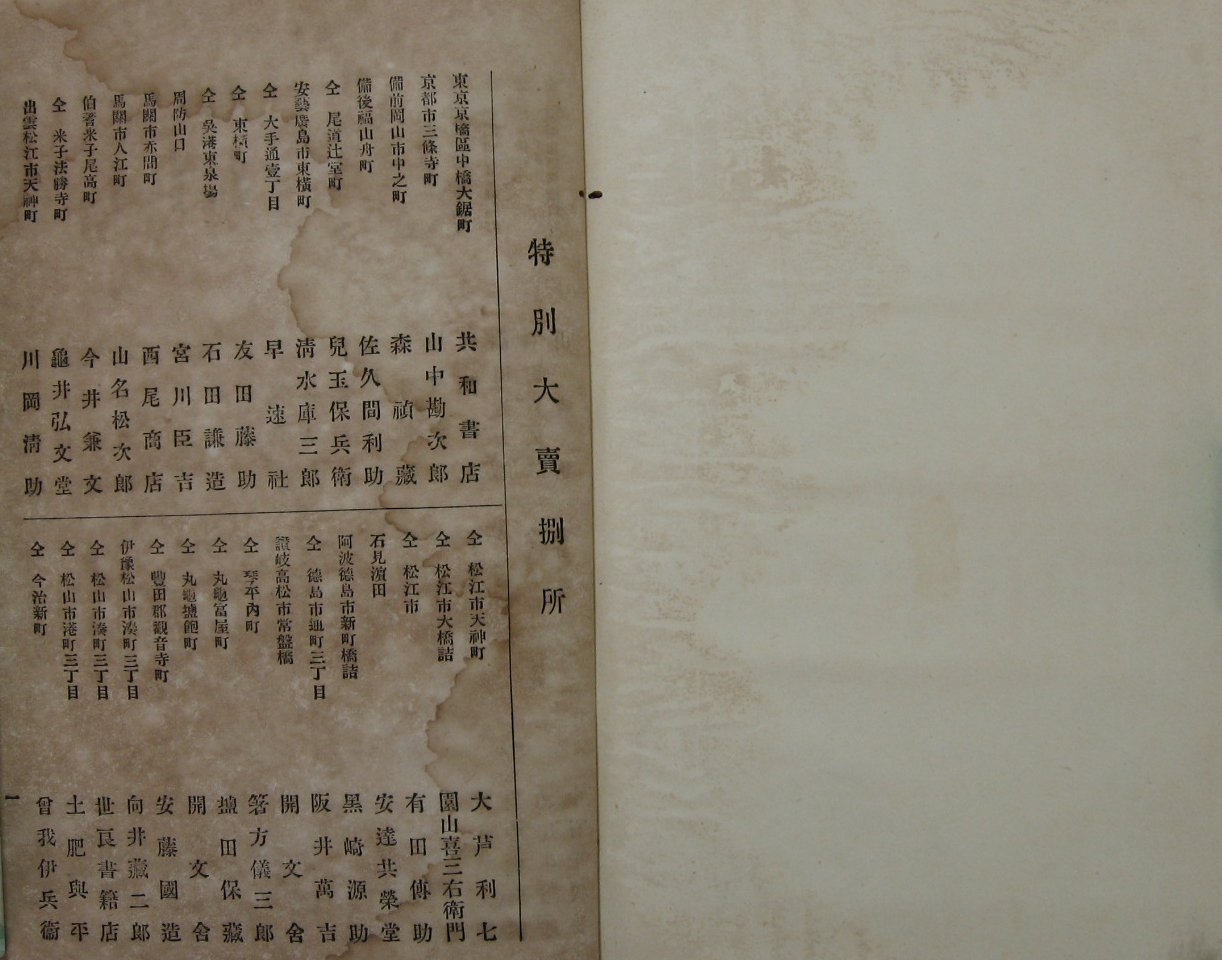 特別大賣捌所
東京京橋區中橋大鋸町 共和書店
京都市三條寺町 山中勘次郎
備前岡山市中之町 森禎藏
備後福山舟町 佐久間利助
仝 尾道辻堂町 兒玉保兵衛
安藝廣島市東橫町 淸水庫三郎
仝 大手通壹丁目 早速社
仝 東橫町 友田藤助
仝 吳港東泉場 石田謙造
周防山口 宮川臣吉
馬關市赤間町 西尾商店
馬關市入江町 山名松次郎
伯耆米子尾高町 今井兼文
仝 米子法勝寺町 龜井弘文堂
出雲松江市天神町 川岡淸助
仝 松江市天神町 大芦利七
仝 松江市大橋詰 園山喜三右衛門
仝 松江市 有田傳助
石見濱田 安達共榮堂
阿波德島市新町橋詰 黑崎源助
仝 德島市通町三丁目 阪井萬吉
讃岐高松市常盤橋 開文舍
仝 琴平內町 箸方儀三郎
仝 丸龜富屋町 鹽田保藏
仝 丸龜鹽飽町 開文舍
仝 豐田郡觀音寺町 安藤國造
伊豫松山市湊町三丁目 向井藏二郎
仝 松山市湊町三丁目 世良書籍店
仝 松山市港町三丁目 土肥與平
仝 今治新町 曾我伊兵衞
一